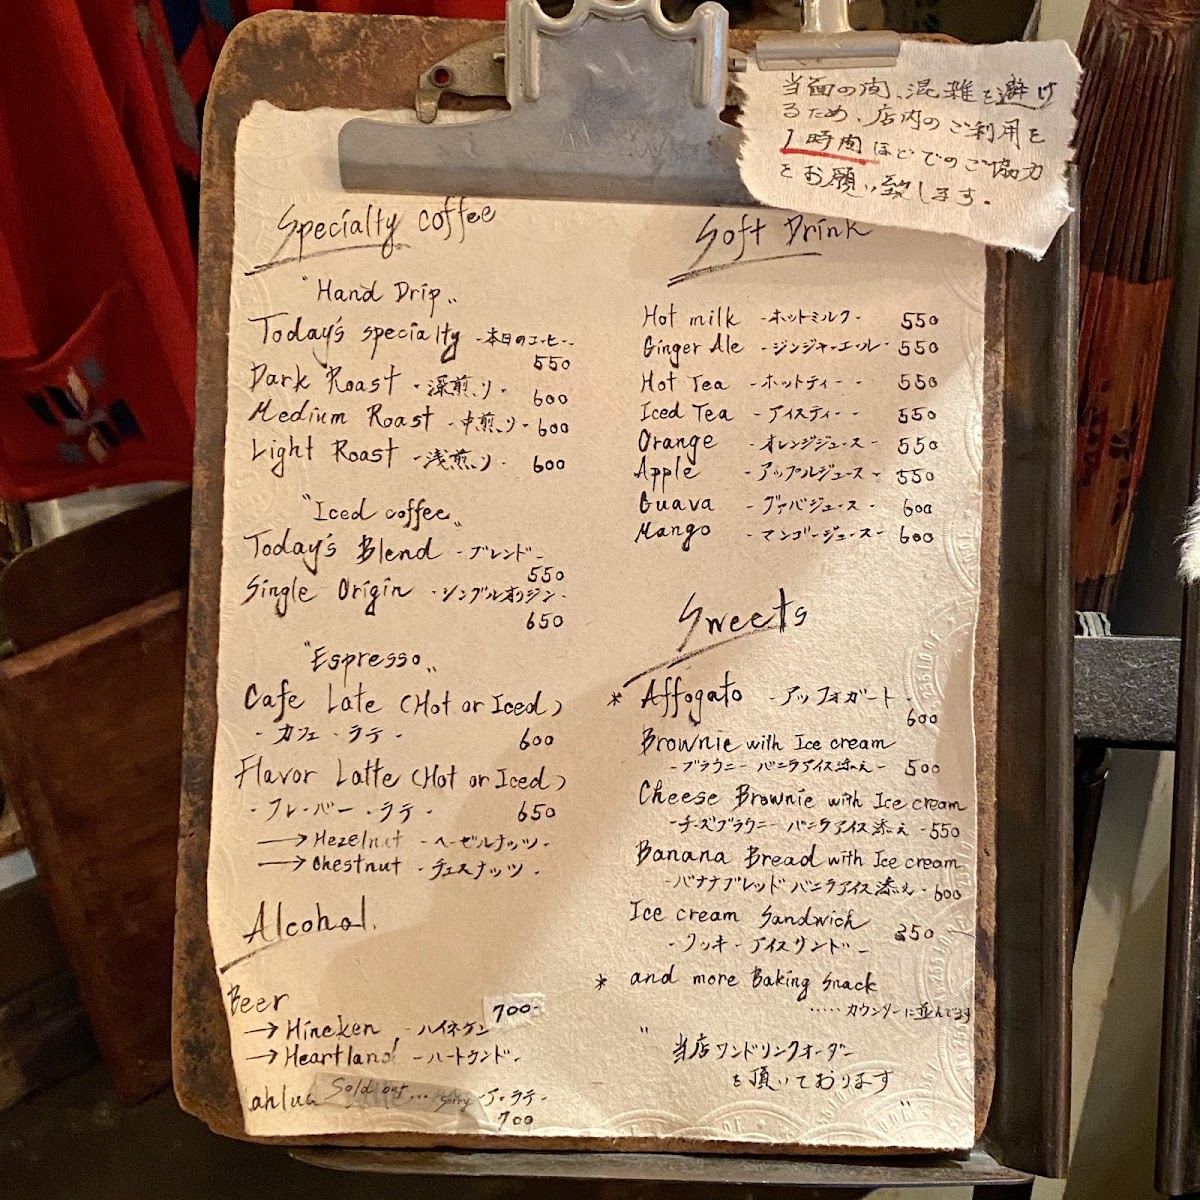 当面の間、混雑を避け
るため、店内のご利用を
1時間ほどでのご協力
をお願い致します。
Specialty Coffee
"Hand Drip"
Today's specialty -本日のコーヒー-
550
Dark Roast -深煎り- 600
Medium Roast -中煎り- 600
Light Roast -浅煎り- 600
"Iced coffee"
Today's Blend -ブレンド-
550
Single Origin -シングルオリジン-
650
"Espresso"
Cafe Late (Hot or Iced)
-カフェ・ラテ- 600
Flavor Latte (Hot or Iced)
-フレーバー・ラテ- 650
→ Hezelnut -ヘーゼルナッツ-
→ Chestnut -チェスナッツ-
Alcohol.
Beer 700-
→ Hineken -ハイネケン
→ Heartland -ハートランド-
ahlua Sold out... sorry ア・ラテ-
700
Soft Drink
Hot milk -ホットミルク- 550
Ginger Ale -ジンジャーエール- 550
Hot Tea -ホットティー- 550
Iced Tea -アイスティー- 550
Orange -オレンジジュース- 550
Apple -アップルジュース- 550
Guava -グァバジュース- 600
Mango -マンゴージュース- 600
Sweets
* Affogato -アッフォガート-
600
Brownie with Ice cream
-ブラウニー バニラアイス添え- 500
Cheese Brownie with Ice cream
-チーズブラウニー バニラアイス添え-550
Banana Bread with Ice cream
-バナナブレッド バニラアイス添え-600
Ice cream Sandwich 350
-クッキーアイスサンド-
* and more Baking Snack
......カウンターに並んでます
"当店ワンドリンクオーダー
を頂いております"